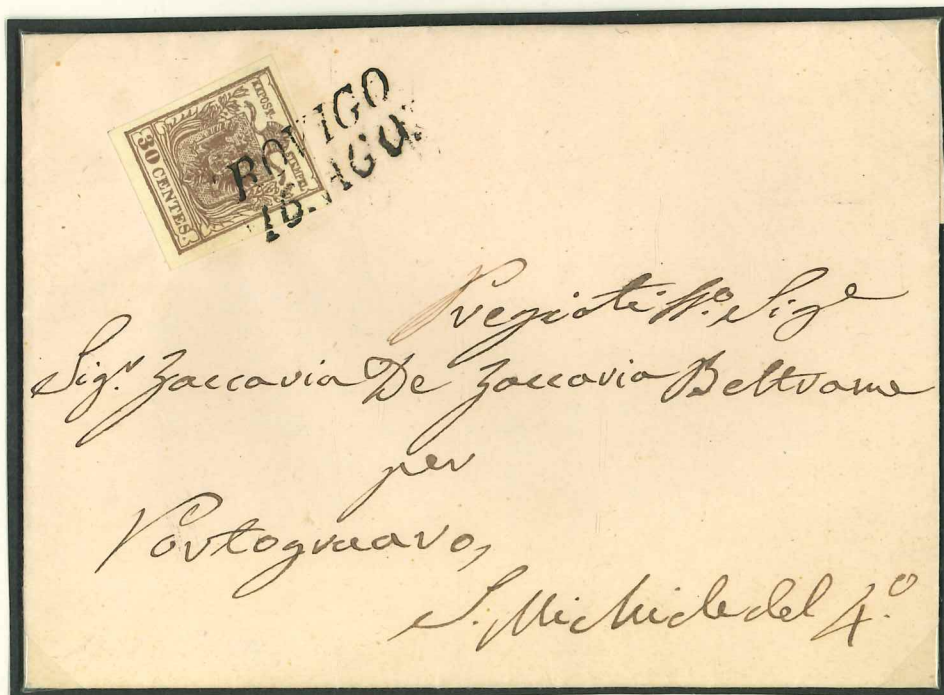 KKPOST-STEMPEL
30 CENTES.
ROVIGO
18. AGO.
Pregiatiss.º Sigre
Sigr Zaccaria De Zaccaria Beltrame
per
Portogruaro,
S. Michiele del 4.º